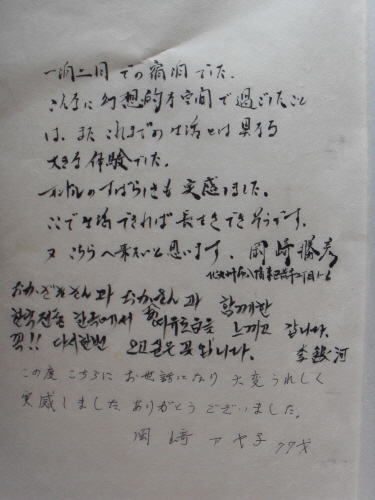 一泊二日での宿泊でした。
こんなに幻想的な空間で過ごしたこと
は、またこれまでの生活とは異なる
大きな体験でした。
オンドルのすばらしさも実感しました。
ここで生活できれば長生きできそうです。
又こちらへ来たいと思います。岡崎勝彦
함께한
한국에서 느끼고 갑니다.
꼭!! 다시한번 오고싶은 곳입니다. 李
この度こちらにお世話になり大変うれしく
実感しましたありがとうございました。
岡崎アヤ子 77才